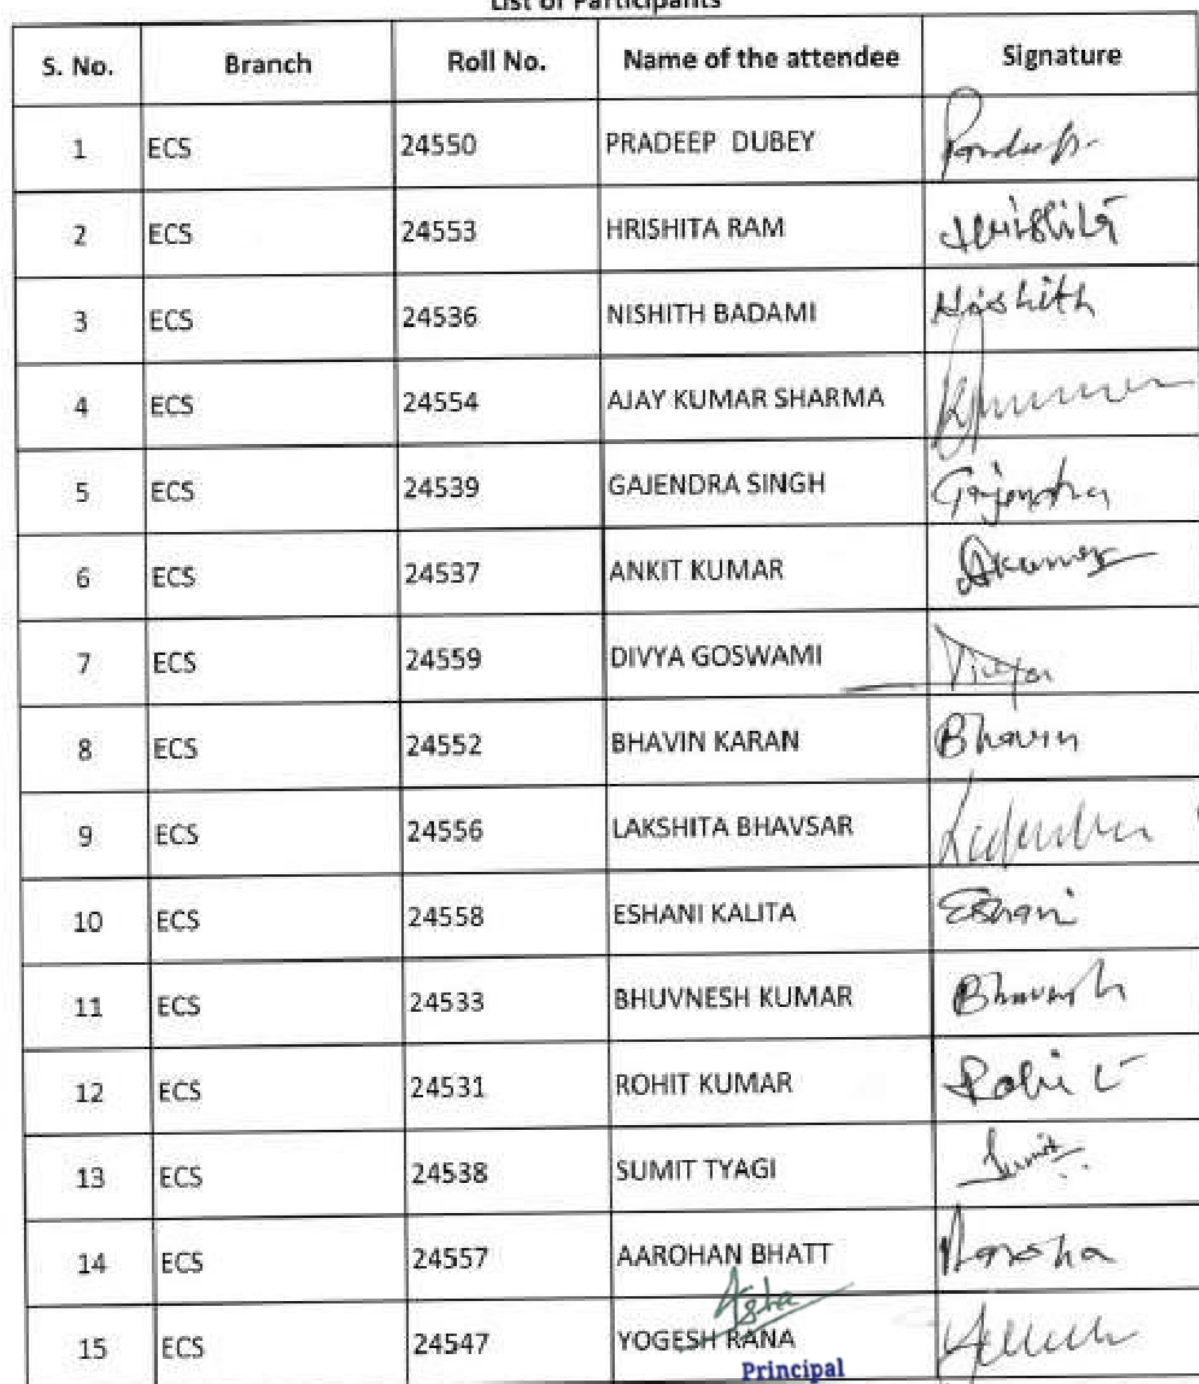 List of Participants
S. No. Branch Roll No. Name of the attendee Signature
1 ECS 24550 PRADEEP DUBEY Pradeep
2 ECS 24553 HRISHITA RAM Hrishita
3 ECS 24536 NISHITH BADAMI Nishith
4 ECS 24554 AJAY KUMAR SHARMA
5 ECS 24539 GAJENDRA SINGH Gajendra
6 ECS 24537 ANKIT KUMAR AKumar
7 ECS 24559 DIVYA GOSWAMI Divya
8 ECS 24552 BHAVIN KARAN Bhavin
9 ECS 24556 LAKSHITA BHAVSAR
10 ECS 24558 ESHANI KALITA Eshani
11 ECS 24533 BHUVNESH KUMAR
12 ECS 24531 ROHIT KUMAR Rohit
13 ECS 24538 SUMIT TYAGI Sumit
14 ECS 24557 AAROHAN BHATT
15 ECS 24547 YOGESH RANA
Principal